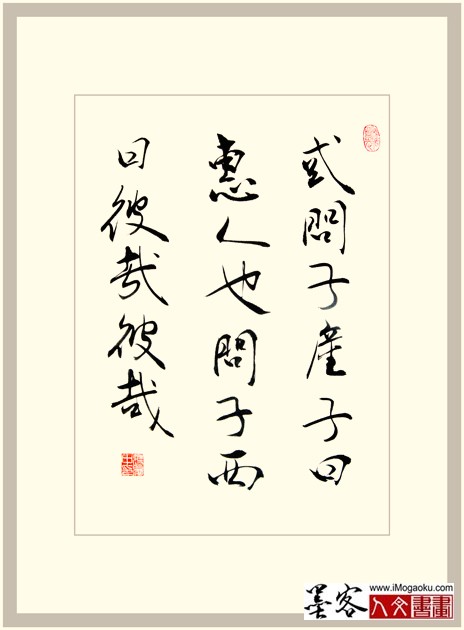 或問子產子曰
惠人也問子西
曰彼哉彼哉
www.iMogaoku.com
墨客
人文書畫